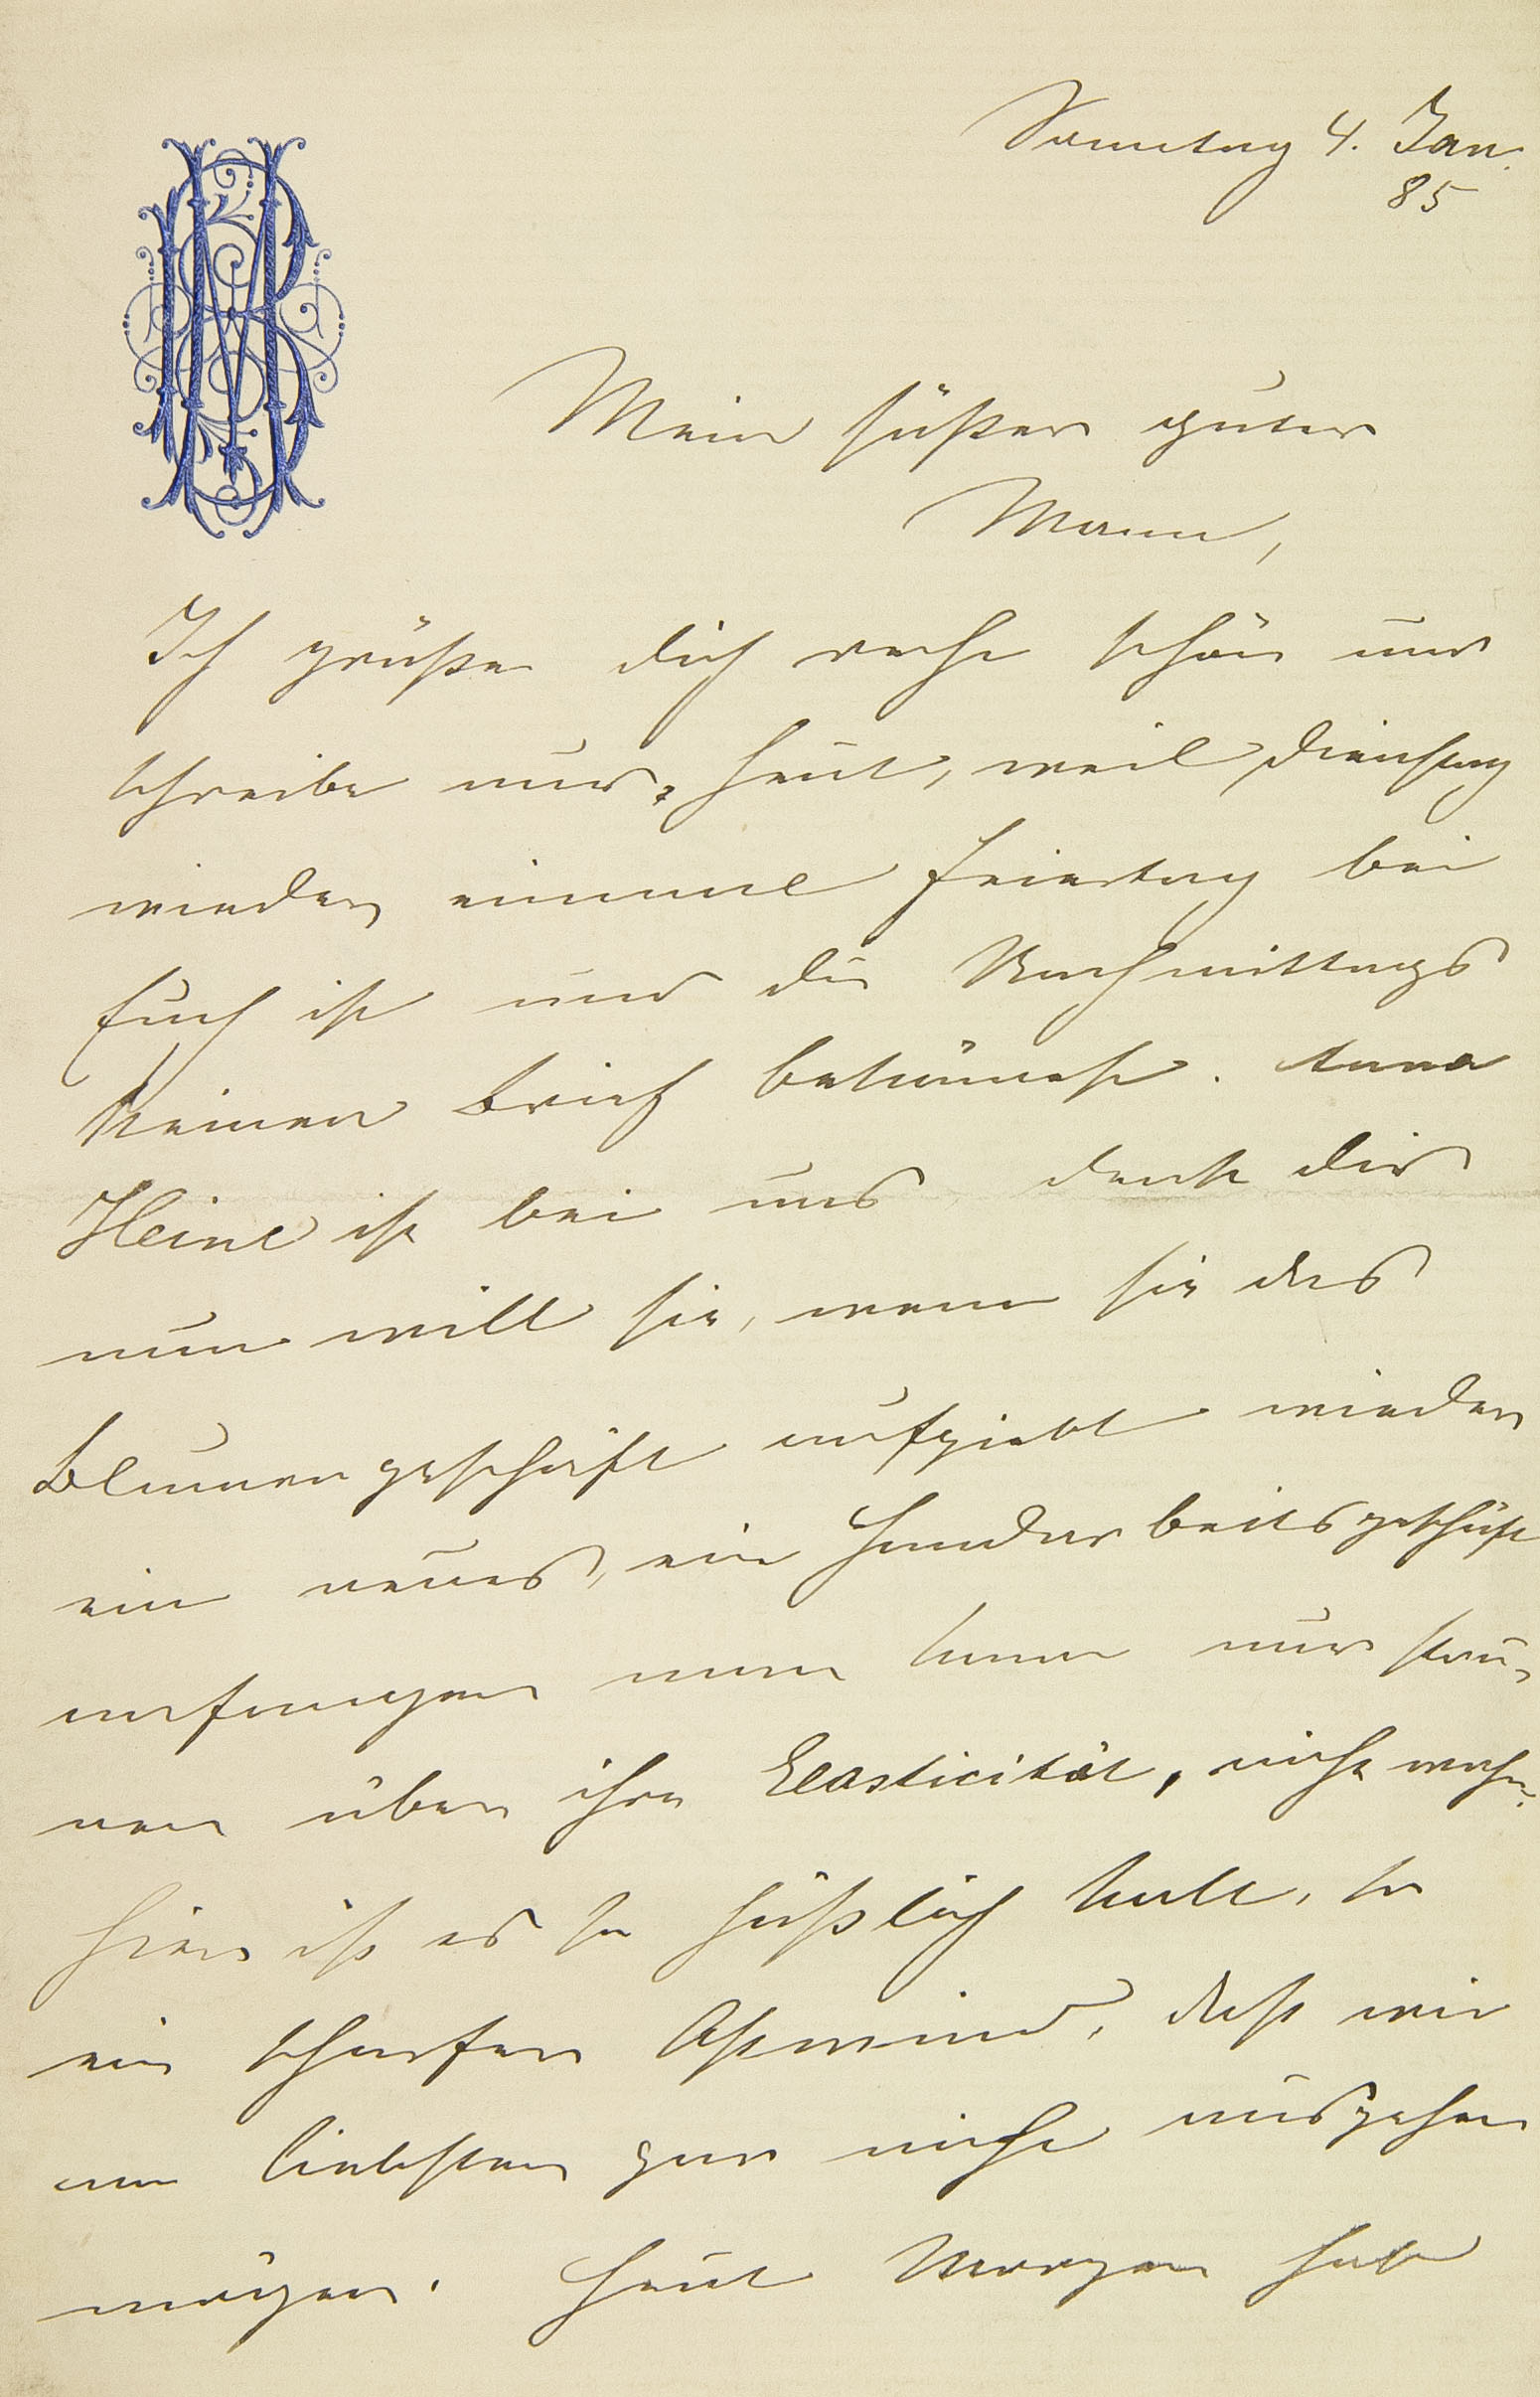 Sonntag 4. Jan.
85
Mein süßer guter
Mann,
Ich grüße dich recht schön und
schreibe nur heut, weil Dienstag
wieder einmal Feiertag bei
Euch ist und du Nachmittags
keinen Brief bekömmst. Anna
Heine ist bei uns denk dir
nun will sie, wenn sie das
Blumengeschäft aufgiebt wieder
ein neues, ein Handarbeitsgeschäft
anfangen man kann nur stau-
nen über ihre Elasticität, nicht wahr.
Hier ist es so häßlich kalt, so
ein scharfer Ostwind, daß wir
am liebsten gar nicht ausgehen
mögen. Heut Morgen hab